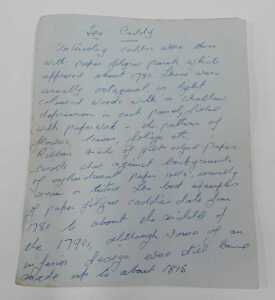 Tea Caddy
Interesting caddies were those
with paper filigree panels which
appeared about 1780. These were
usually octagonal in light
coloured woods with a shallow
depression in each panel, filled
with paperwork in the pattern of
flowers, leaves, foliage etc.
Ribbon made of gilt edged paper
scrolls also against backgrounds
of paper were usually
The best examples
of paper filigree caddies date from
1780 to about the middle of
the 1790s, although some of an
inferior design was still being
made up to about 1815